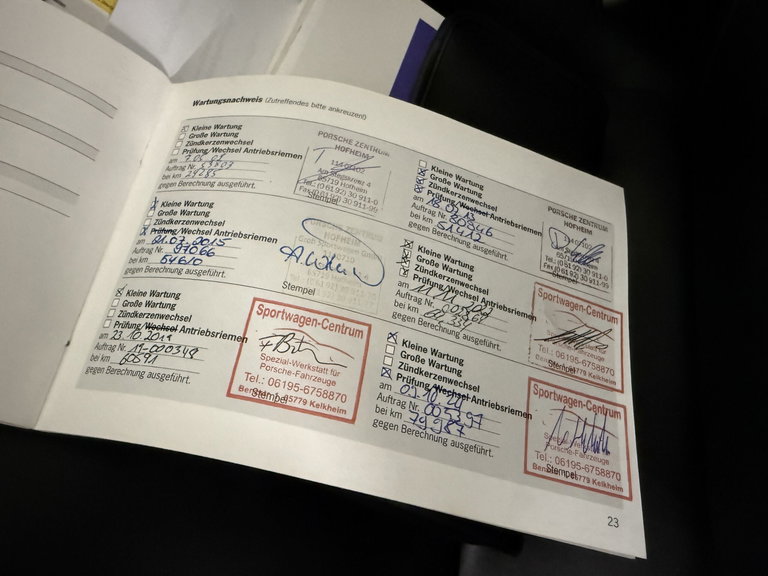 Wartungsnachweis (Zutreffendes bitte ankreuzen!)
Kleine Wartung
Große Wartung
Zündkerzenwechsel
Prüfung/Wechsel Antriebsriemen
am
Auftrag Nr.
bei km 29285
gegen Berechnung ausgeführt.
PORSCHE ZENTRUM
HOFHEIM
65719 Hofheim
Tel.: (0 61 92) 30 911-0
Fax (0 61 92) 30 911-99
Stempel
Kleine Wartung
Große Wartung
Zündkerzenwechsel
Prüfung/Wechsel Antriebsriemen
am 18.02.13
Auftrag Nr.
bei km 51412
gegen Berechnung ausgeführt.
PORSCHE ZENTRUM
HOFHEIM
Stempel
Kleine Wartung
Große Wartung
Zündkerzenwechsel
Prüfung/Wechsel Antriebsriemen
am 21.07.2015
Auftrag Nr. 97066
bei km 54610
gegen Berechnung ausgeführt.
PORSCHE ZENTRUM
HOFHEIM
Stempel
Kleine Wartung
Große Wartung
Zündkerzenwechsel
Prüfung/Wechsel Antriebsriemen
am
Auftrag Nr.
bei km
gegen Berechnung ausgeführt.
Sportwagen-Centrum
Porsche-Fahrzeuge
Stempel
Tel.: 06195-6758870
65779 Kelkheim
Kleine Wartung
Große Wartung
Zündkerzenwechsel
Prüfung/Wechsel Antriebsriemen
am 23.10.2019
Auftrag Nr. 19-000348
bei km 60591
gegen Berechnung ausgeführt.
Sportwagen-Centrum
Spezial-Werkstatt für
Porsche-Fahrzeuge
Tel.: 06195-6758870
Stempel
65779 Kelkheim
Kleine Wartung
Große Wartung
Zündkerzenwechsel
Prüfung/Wechsel Antriebsriemen
am 09.10.20
Auftrag Nr. 005397
bei km 79987
gegen Berechnung ausgeführt.
Sportwagen-Centrum
Porsche-Fahrzeuge
Tel.: 06195-6758870
Stempel
65779 Kelkheim
23